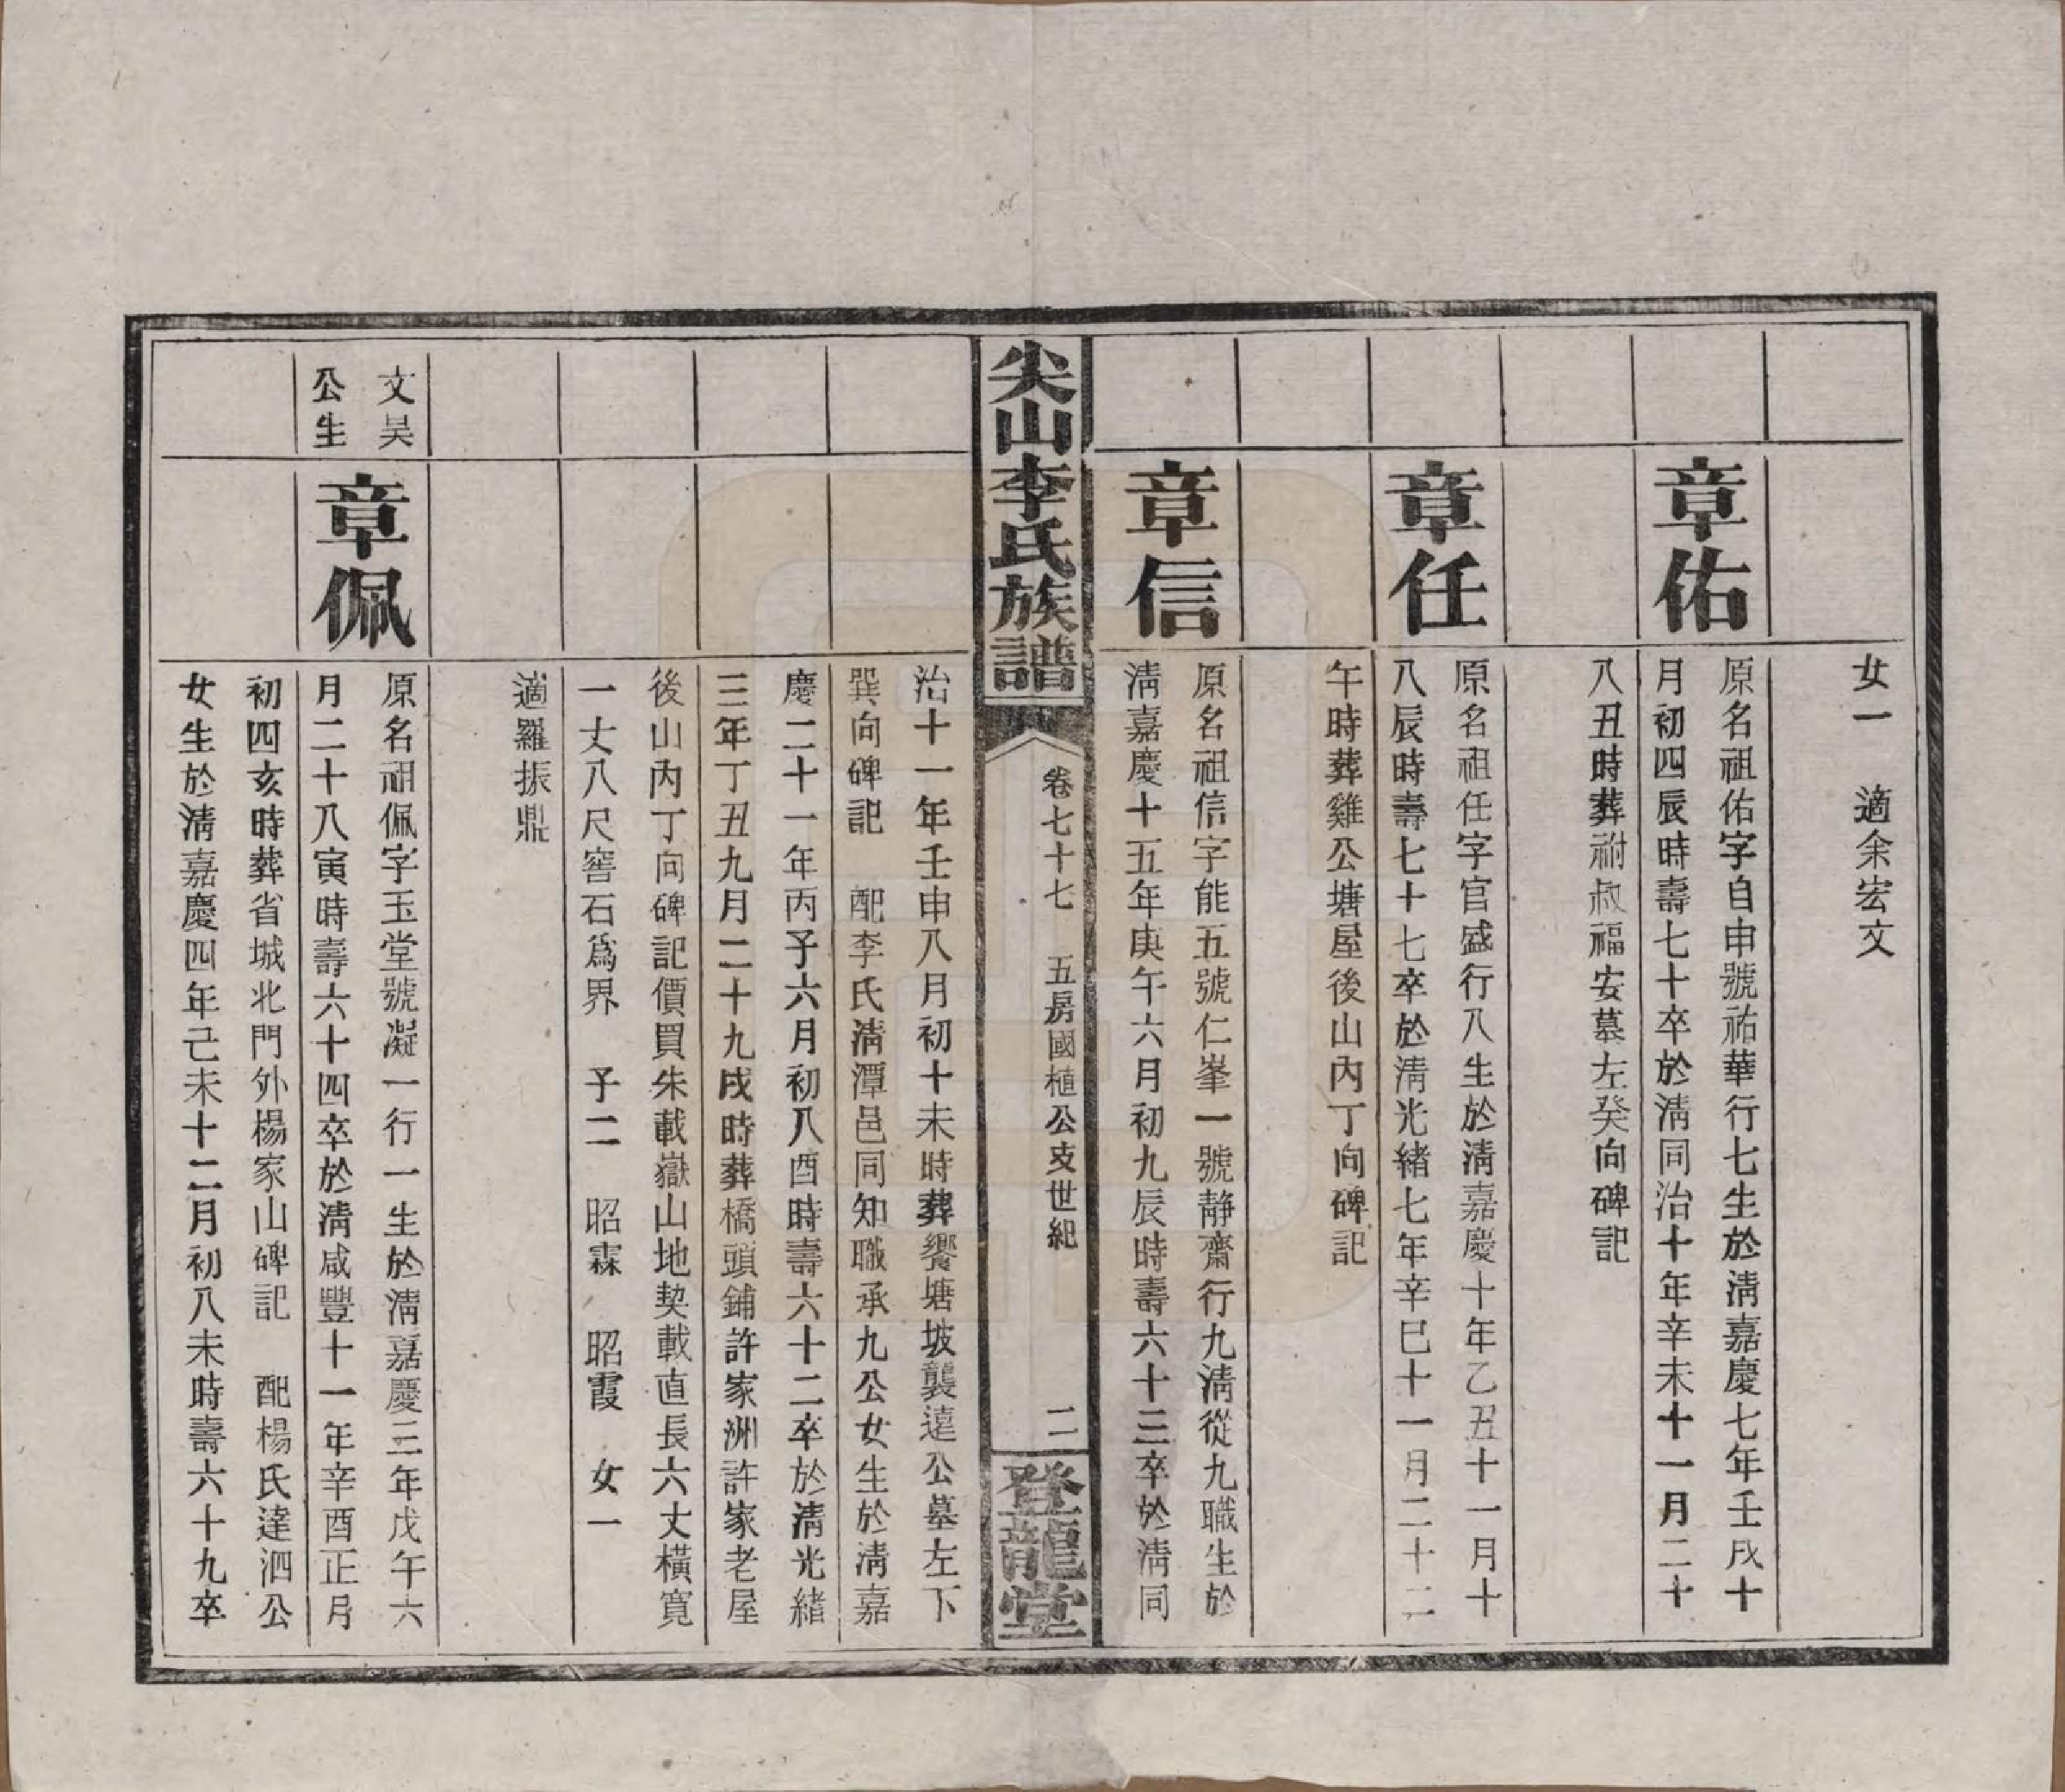 女一　適余宏文
章佑
原名祖佑字自申號祐華行七生於淸嘉慶七年壬戌十
月初四辰時壽七十卒於淸同治十年辛未十一月二十
八丑時葬祔叔福安墓左癸向碑記
章任
原名祖任字官盛行八生於淸嘉慶十年乙丑十一月十
八辰時壽七十七卒於淸光緒七年辛巳十一月二十二
午時葬雞公塘屋後山內丁向碑記
章信
原名祖信字能五號仁峯一號靜齋行九淸從九職生於
淸嘉慶十五年庚午六月初九辰時壽六十三卒於淸同
尖山李氏族譜
卷七十七　五房國植公支世紀　二
登龍堂
治十一年壬申八月初十未時葬饗塘坡襲遠公墓左下
巽向碑記　配李氏淸潭邑同知職承九公女生於淸嘉
慶二十一年丙子六月初八酉時壽六十二卒於淸光緒
三年丁丑九月二十九戌時葬橋頭鋪許家洲許家老屋
後山內丁向碑記價買朱載嶽山地契載直長六丈橫寬
一丈八尺窖石爲界　子二　昭霖　昭霞　女一
適羅振鼎
文昊
公生
章佩
原名祖佩字玉堂號凝一行一生於淸嘉慶三年戊午六
月二十八寅時壽六十四卒於淸咸豐十一年辛酉正月
初四亥時葬省城北門外楊家山碑記　配楊氏達泗公
女生於淸嘉慶四年己未十二月初八未時壽六十九卒